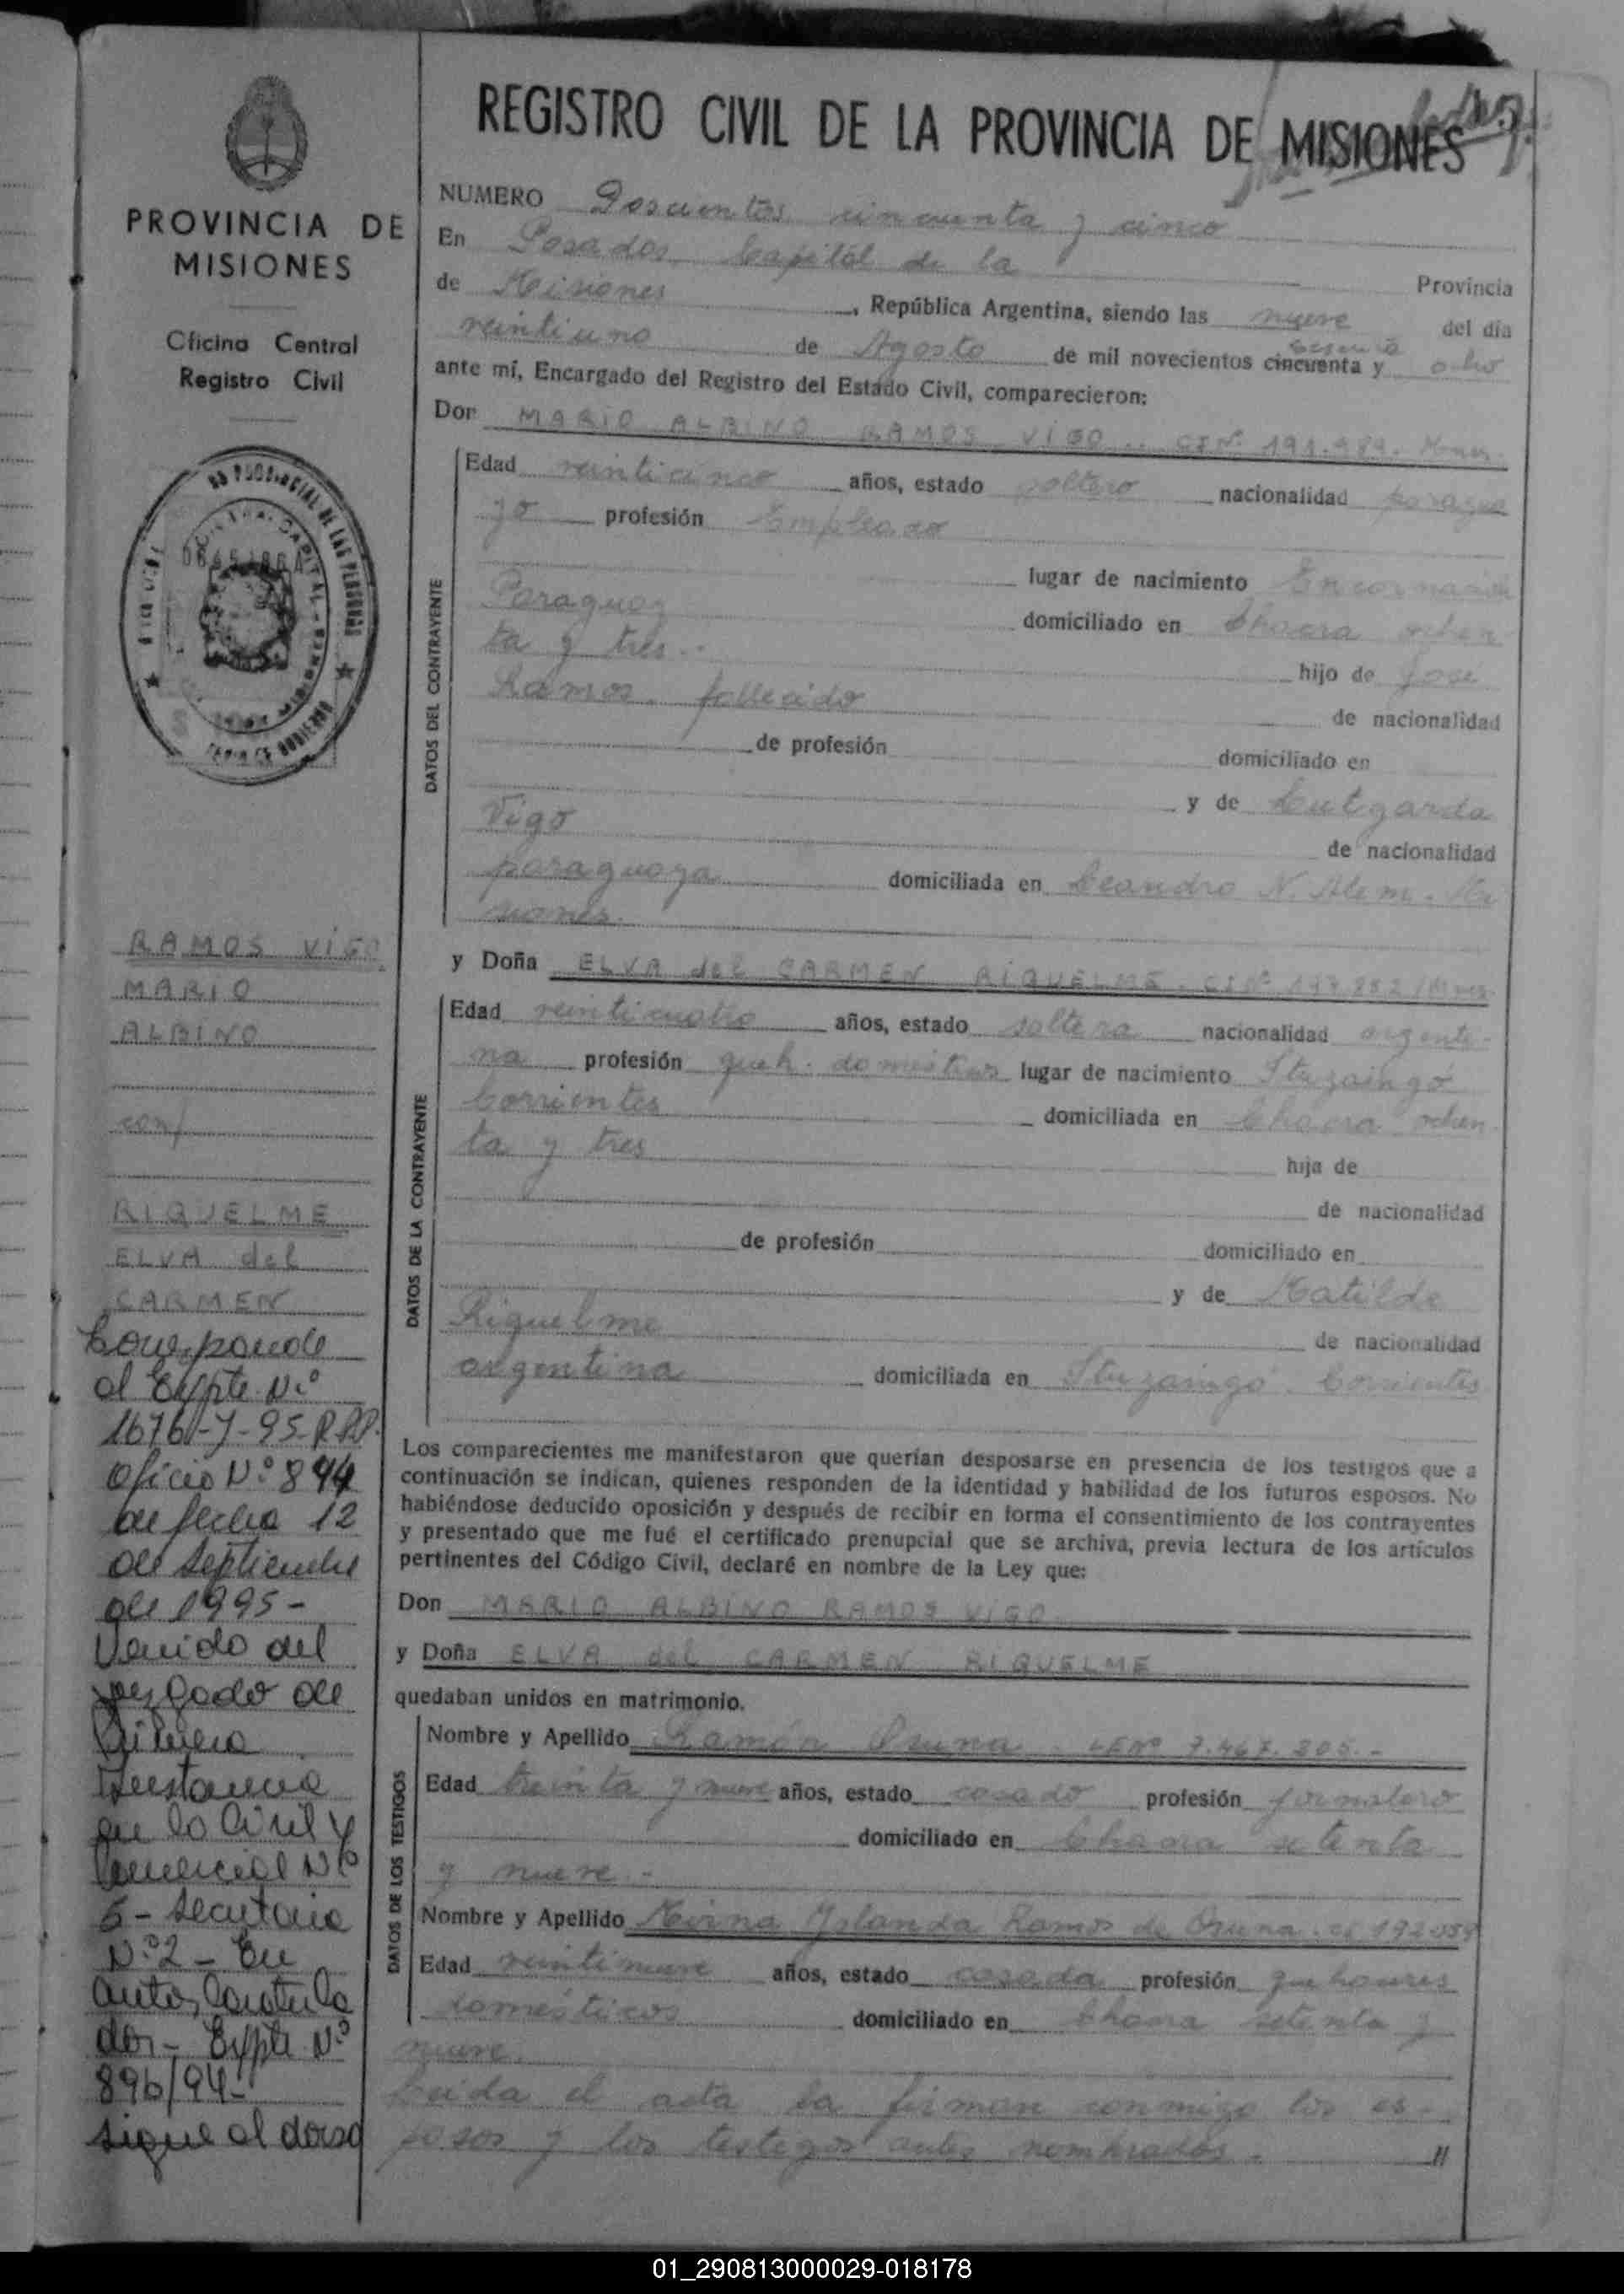 REGISTRO CIVIL DE LA PROVINCIA DE MISIONES
PROVINCIA DE
MISIONES
Oficina Central
Registro Civil
RAMOS VIGO
MARIO
ALBINO
con
RIQUELME
ELVA del
CARMEN
Corresponde
al Expte. Nº
1676-7-95-
Oficio Nº 894
de fecha 12
de Septiembre
de 1995-
Venido del
Juzgado de
Primera
Instancia
en lo Civil y
Comercial Nº
5- Secretaria
Nº 2 - En
autos Caratula
dos- Expte Nº
896/94-
sigue al dorso
NUMERO Doscientos cincuenta y cinco
En Posadas Capital de la Provincia
de Misiones, República Argentina, siendo las nueve del día
veintiuno de Agosto de mil novecientos cincuenta y ocho
sesenta
ante mí, Encargado del Registro del Estado Civil, comparecieron:
Don MARIO ALBINO RAMOS VIGO.. CI Nº 191.989. Mnes.
DATOS DEL CONTRAYENTE
Edad veinticinco años, estado soltero nacionalidad paragua
yo profesión Empleado
lugar de nacimiento Encarnación
Paraguay domiciliado en Chacra ochen
ta y tres.. hijo de José
Ramos. fallecido de nacionalidad
de profesión domiciliado en
y de Lutgarda
Vigo de nacionalidad
paraguaya domiciliada en Leandro N. Alem. Mi
siones.
y Doña ELVA del CARMEN RIQUELME. CI Nº 197.852/Mnes
DATOS DE LA CONTRAYENTE
Edad veinticuatro años, estado soltera nacionalidad argenti-
na profesión queh. domésticos lugar de nacimiento Ituzaingó
Corrientes domiciliada en Chacra ochen
ta y tres hija de
de nacionalidad
de profesión domiciliado en
y de Matilde
Riquelme de nacionalidad
argentina domiciliada en Ituzaingó. Corrientes
Los comparecientes me manifestaron que querían desposarse en presencia de los testigos que a
continuación se indican, quienes responden de la identidad y habilidad de los futuros esposos. No
habiéndose deducido oposición y después de recibir en forma el consentimiento de los contrayentes
y presentado que me fué el certificado prenupcial que se archiva, previa lectura de los artículos
pertinentes del Código Civil, declaré en nombre de la Ley que:
Don MARIO ALBINO RAMOS VIGO
y Doña ELVA del CARMEN RIQUELME
quedaban unidos en matrimonio.
DATOS DE LOS TESTIGOS
Nombre y Apellido Ramón Osuna. LE Nº 7.467.205.-
Edad treinta y nueve años, estado casado profesión jornalero
domiciliado en Chacra setenta
y nueve.-
Nombre y Apellido Mirna Yolanda Ramos de Osuna. CI 192.059
Edad veintinueve años, estado casada profesión quehaceres
domésticos domiciliado en Chacra setenta y
nueve.
Leida el acta la firman conmigo los es-
posos y los testigos antes nombrados.- //
01_290813000029-018178